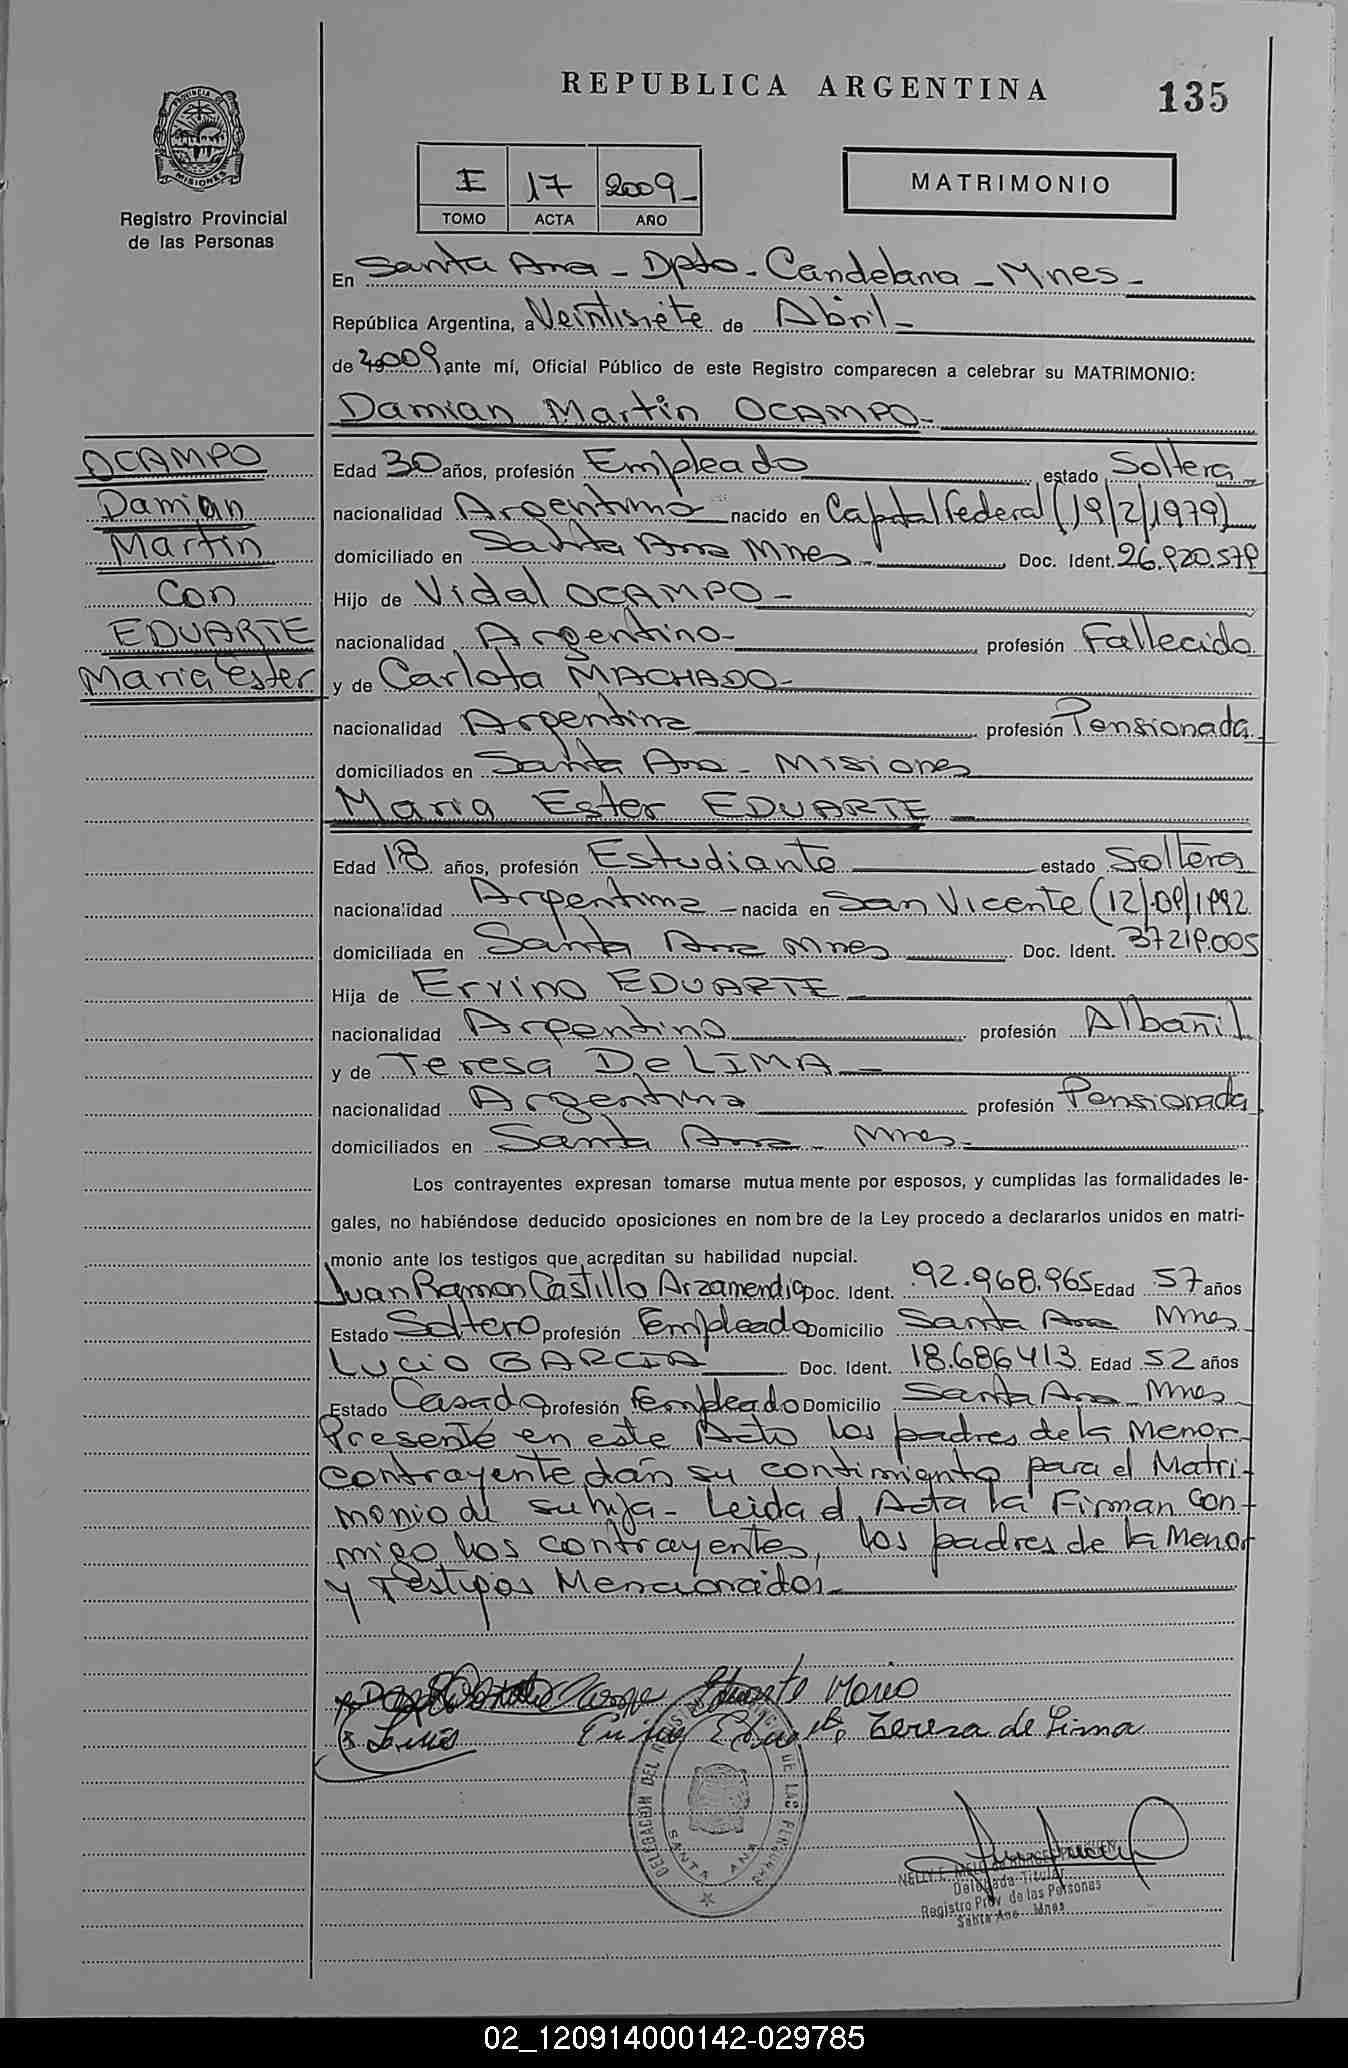 REPUBLICA ARGENTINA
135
PROVINCIA DE
MISIONES
Registro Provincial
de las Personas
I 17 2009-
TOMO ACTA AÑO
MATRIMONIO
En Santa Ana - Dpto - Candelaria - Mnes -
República Argentina, a Veintisiete de Abril -
de 2009 ante mí, Oficial Público de este Registro comparecen a celebrar su MATRIMONIO:
Damian Martin OCAMPO -
OCAMPO
Damian
Martin
Con
EDUARTE
Maria Ester
Edad 30 años, profesión Empleado estado Soltera
nacionalidad Argentino nacido en Capital Federal (19/2/1979)
domiciliado en Santa Ana Mnes - Doc. Ident. 26.920.579
Hijo de Vidal OCAMPO -
nacionalidad Argentino - profesión Fallecido
y de Carlota MACHADO -
nacionalidad Argentina profesión Pensionada
domiciliados en Santa Ana - Misiones
Maria Ester EDUARTE
Edad 18 años, profesión Estudiante estado Soltera
nacionalidad Argentina - nacida en San Vicente (12/09/1992
domiciliada en Santa Ana Mnes Doc. Ident. 37219.005
Hija de Ervino EDUARTE
nacionalidad Argentino profesión Albañil
y de Teresa De LIMA -
nacionalidad Argentina profesión Pensionada
domiciliados en Santa Ana - Mnes -
Los contrayentes expresan tomarse mutua mente por esposos, y cumplidas las formalidades le-
gales, no habiéndose deducido oposiciones en nom bre de la Ley procedo a declararlos unidos en matri-
monio ante los testigos que acreditan su habilidad nupcial.
Juan Ramon Castillo Arzamendia Doc. Ident. 92.968.965 Edad 57 años
Estado Soltero profesión Empleado Domicilio Santa Ana Mnes
Lucio GARCIA Doc. Ident. 18.686413 Edad 52 años
Estado Casado profesión Empleado Domicilio Santa Ana Mnes
Presente en este Acto los padres de la Menor
contrayente dán su contimiento para el Matri-
monio de su hija - Leida el Acta la Firman Con-
migo los contrayentes, los padres de la Menor
y Testigos Mencionados -
Eduarte Maria
Teresa de Lima
DELEGACION DEL REGISTRO PROVINCIAL DE LAS PERSONAS
SANTA ANA
NELLY E.
Delegada Titular
Registro Prov. de las Personas
Santa Ana - Mnes
02_120914000142-029785